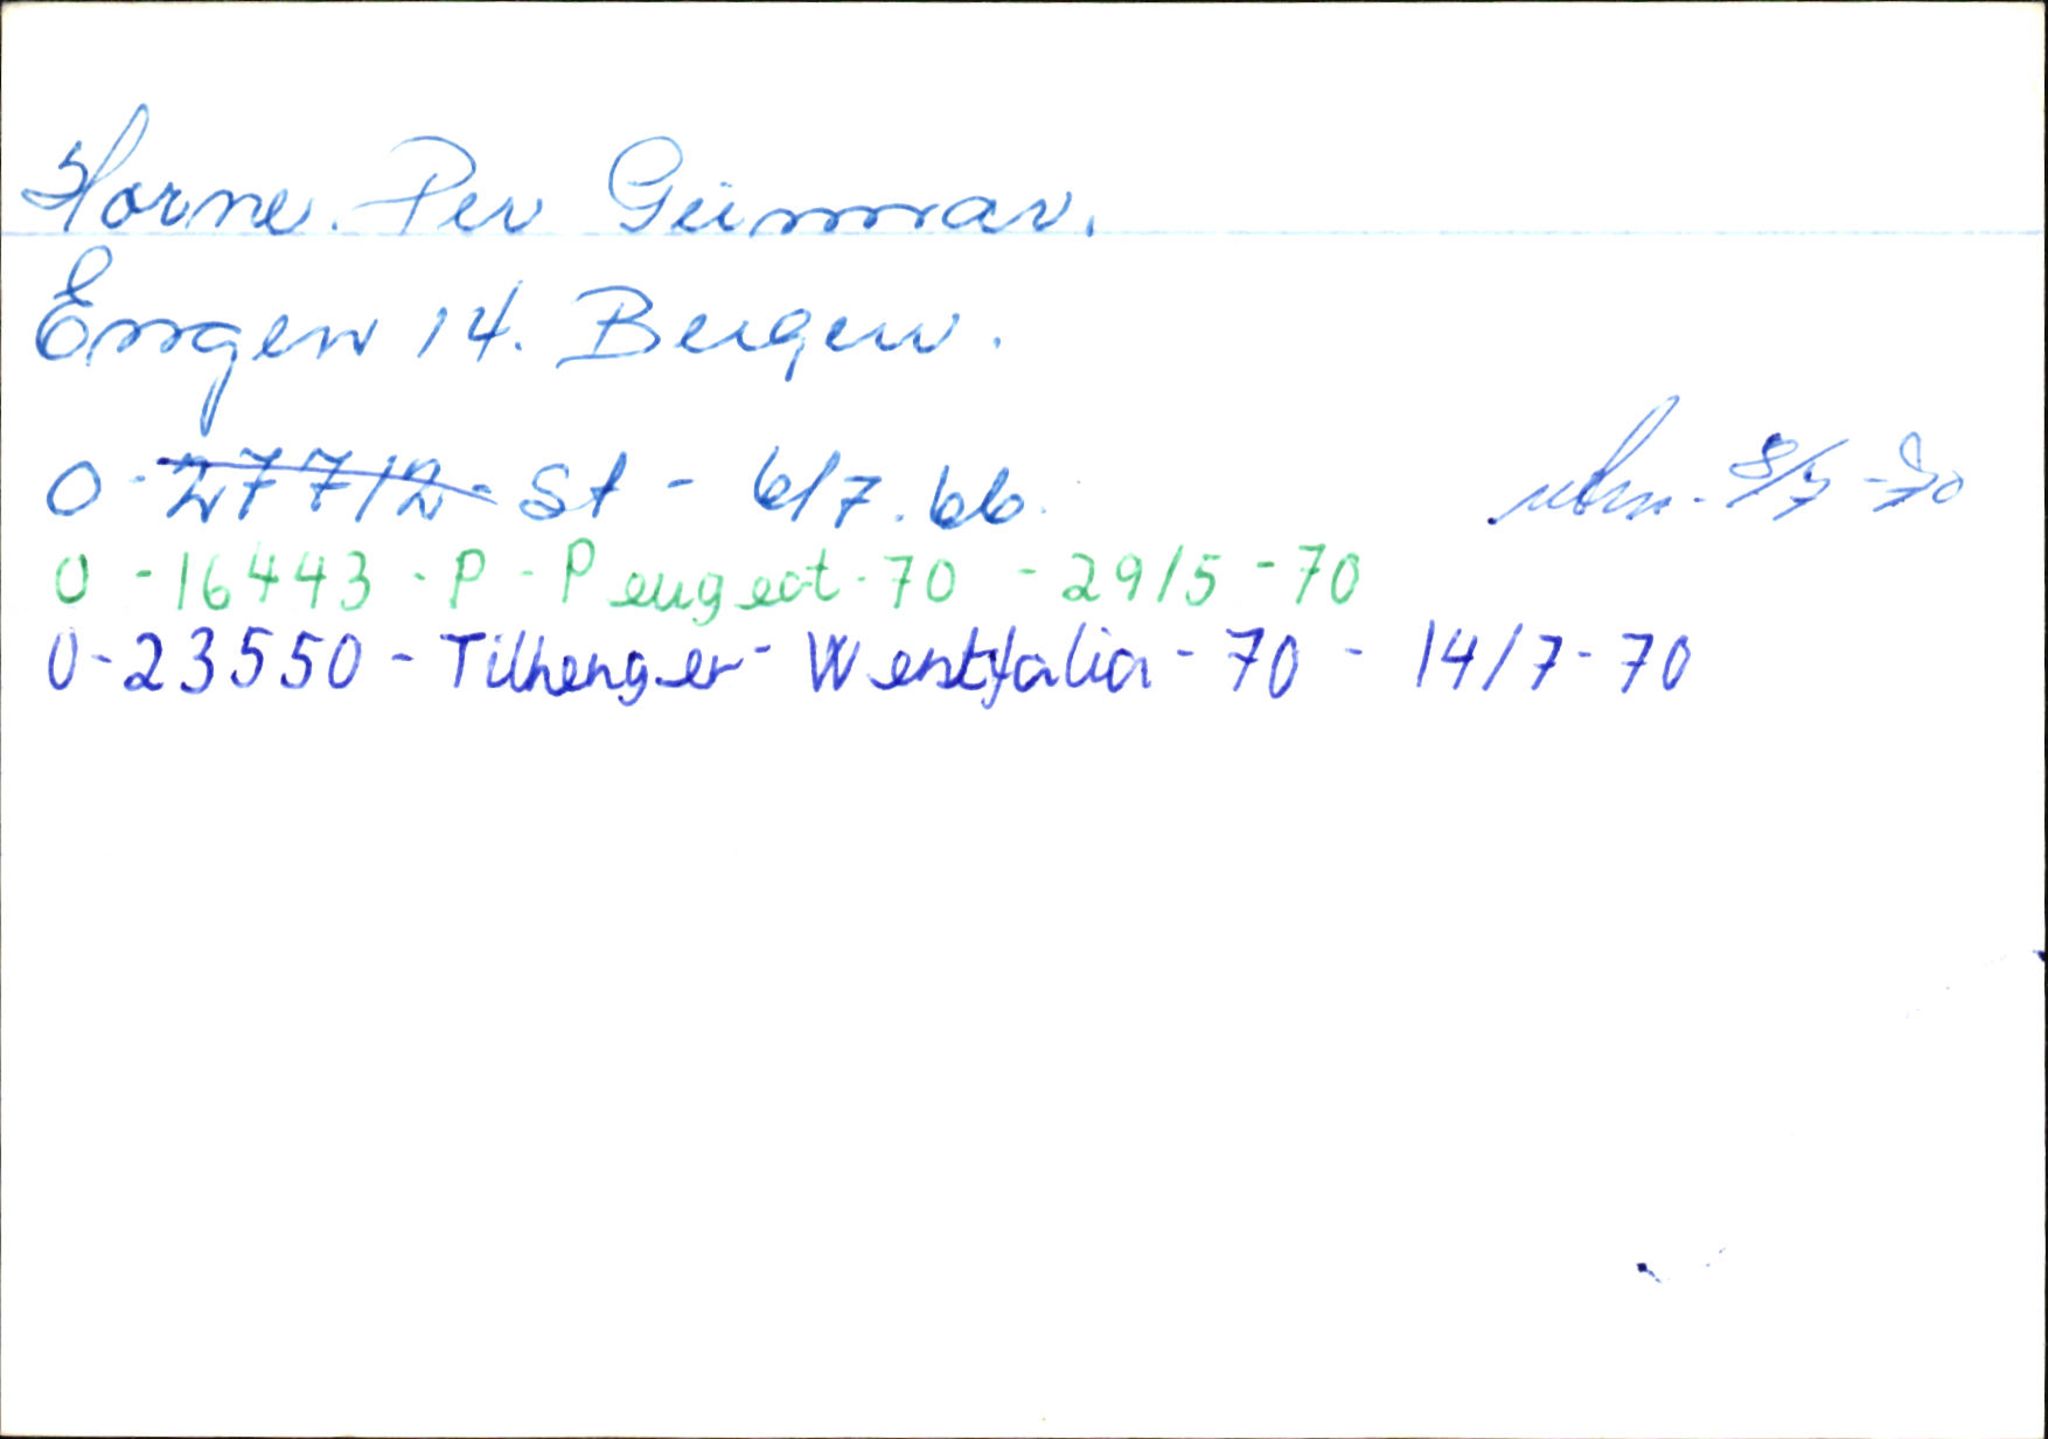 Horne. Per Gunnar.
Engen 14. Bergen.
O-27712-St - 6/7.66.
8/7-70
O-16443-P-Peugeot-70 -29/5-70
O-23550-Tilhenger-Westfalia-70 - 14/7-70